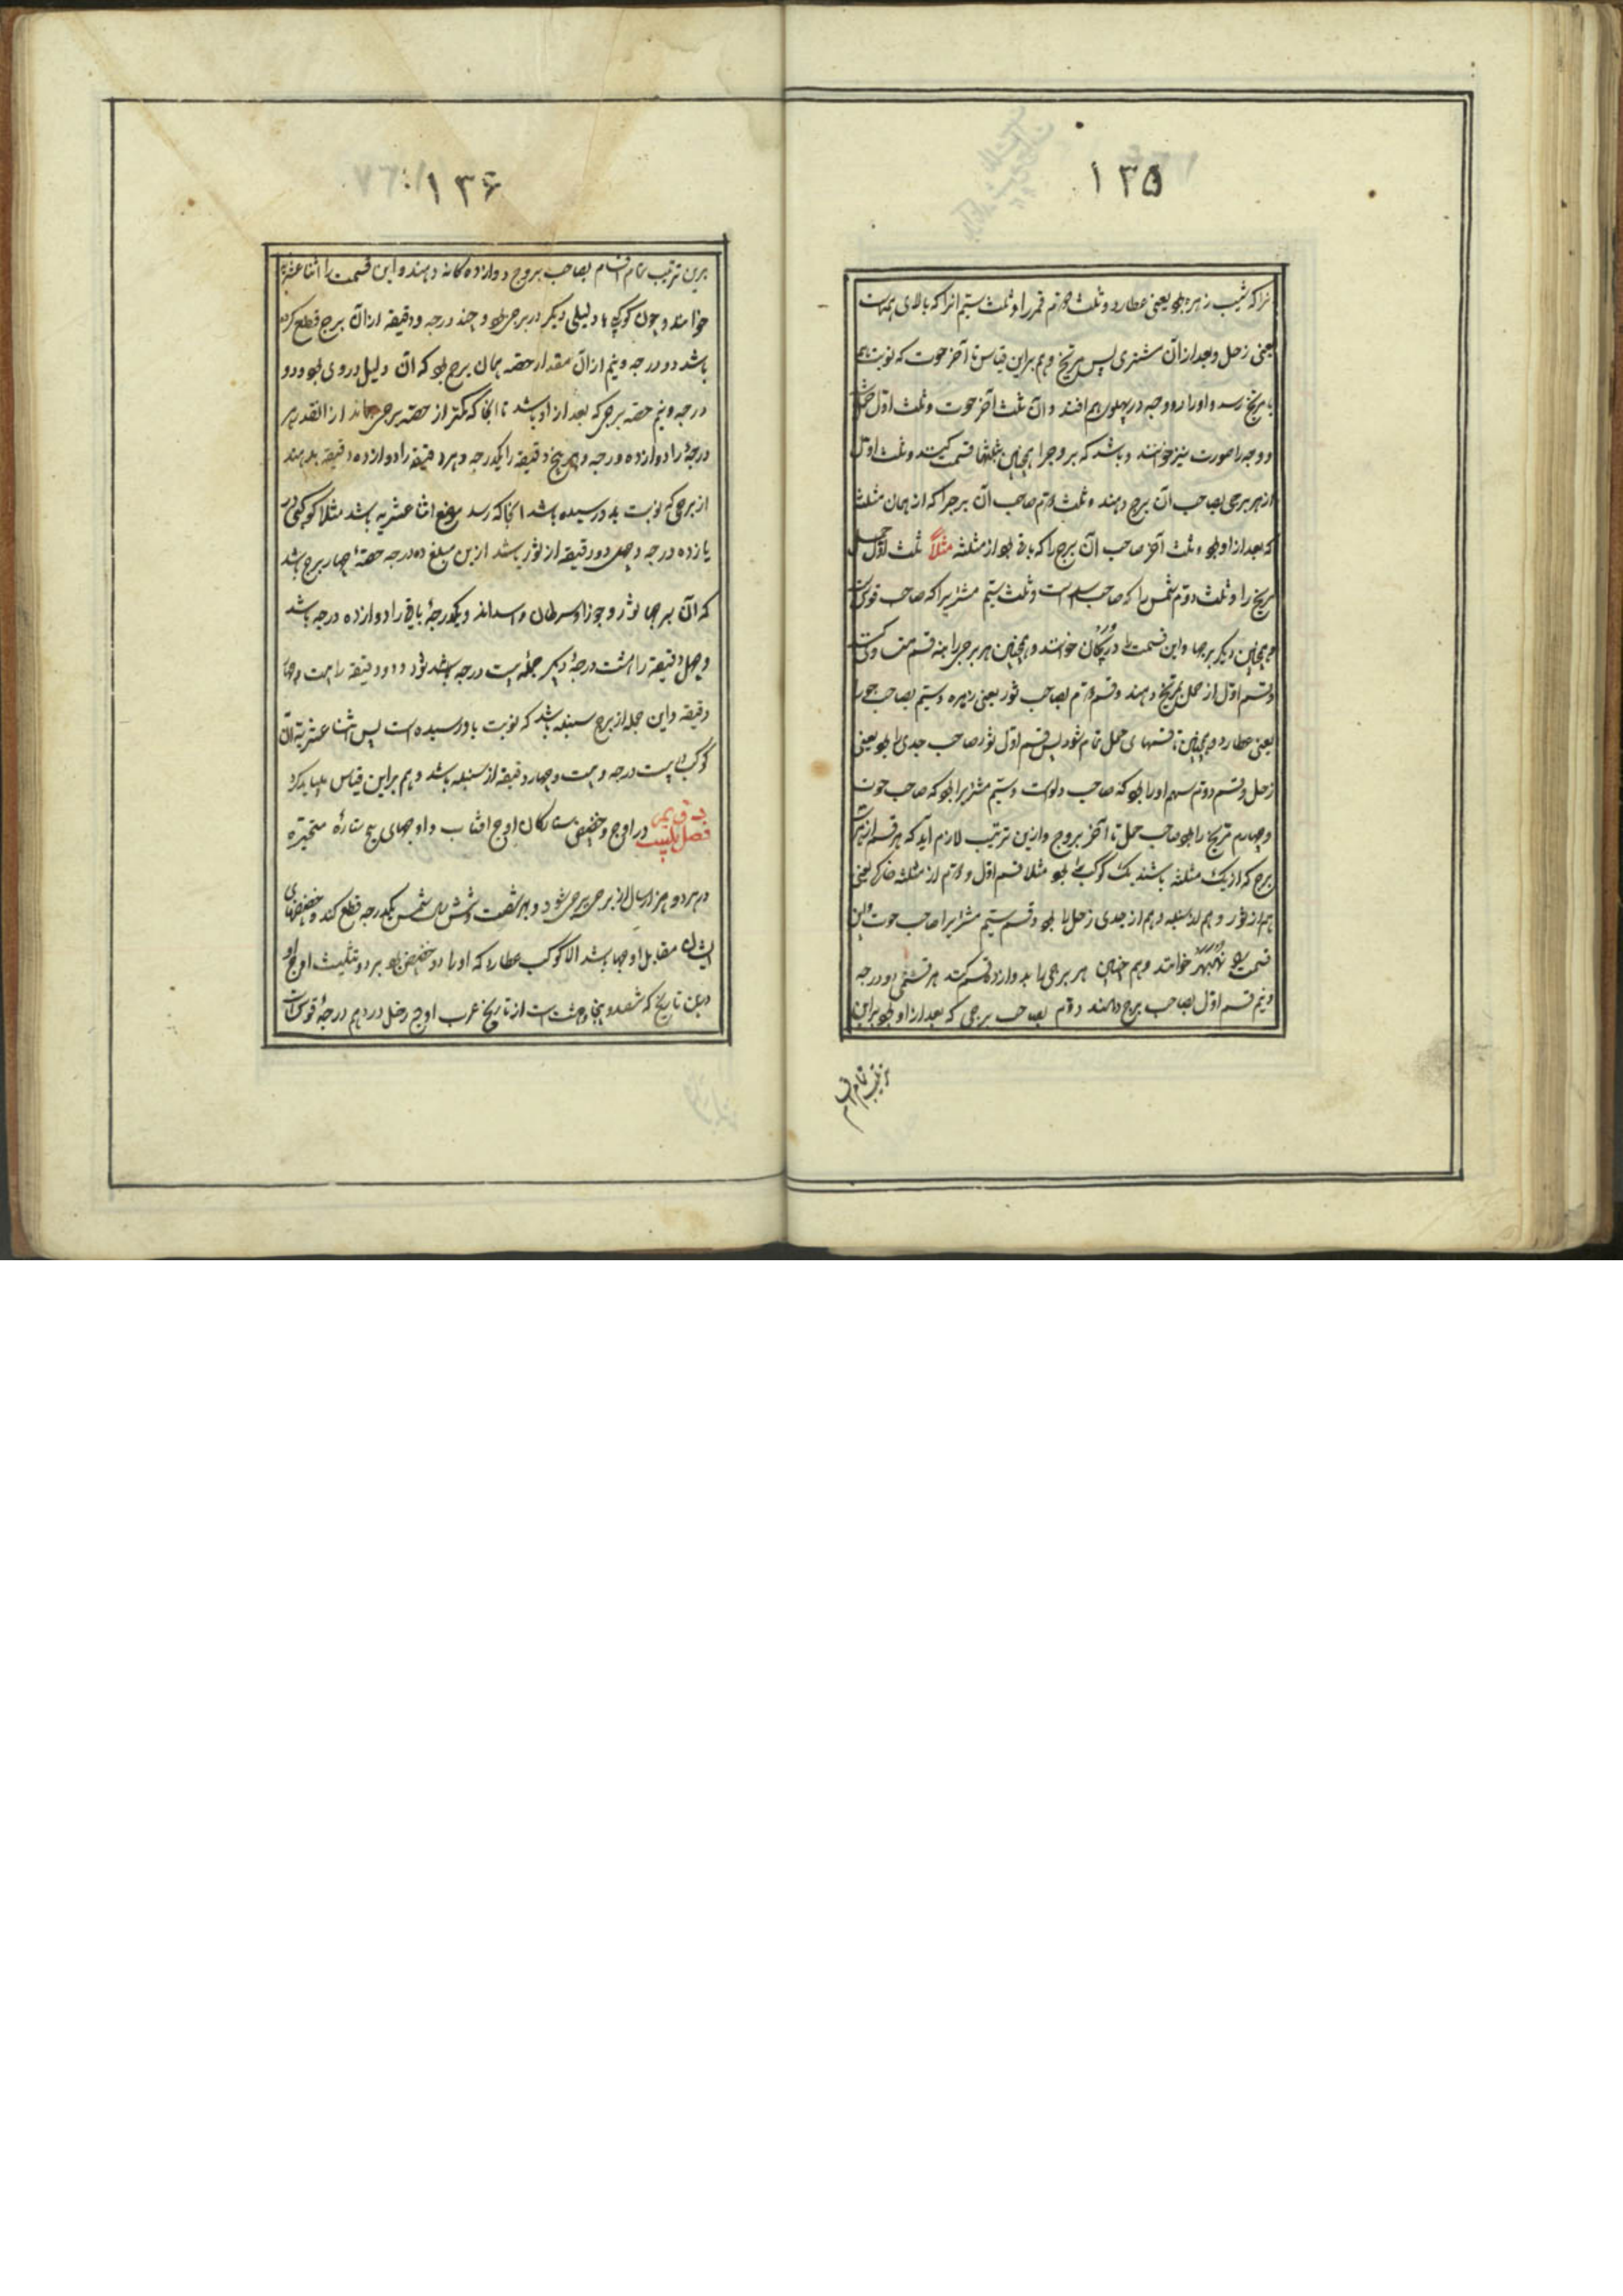 ۱۳۵
انرا که شیب زهره بود یعنی عطارد و ثلث دوّم قمر را و ثلث سیّم انرا که بالای همه است
یعنی زحل و بعد از آن مشتری پس مریخ و هم براین قیاس تا آخر حوت که نوبت هم
با مریخ رسد و او را دو وجه در پهلوی هم افتد و آن ثلث آخر حوت و ثلث اوّل حمل
و وجه را صورت نیز خوانند و باشد که بروج را همچنین بثلثها قسمت کنند و ثلث اوّل
از هر برجی بصاحب آن برج دهند و ثلث دوّم صاحب آن برج را که از همان مثلثه
که بعد از او بود و ثلث آخر صاحب آن برج را که باقی بود از مثلثه مثلاً ثلث اوّل حمل
مریخ را و ثلث دوّم شمس را که صاحب اسد است و ثلث سیّم مشتریرا که صاحب قوس است
و همچنین دیگر برجها و این قسمت را دریجان خوانند و همچنین هر برجی را بنه قسم
و قسم اوّل از حمل بمریخ دهند و قسم دوّم بصاحب ثور یعنی زهره و سیّم بصاحب جوزا
یعنی عطارد و همچنین تا قسمهای حمل تمام شود پس قسم اوّل ثور صاحب جدی را بود یعنی
زحل و قسم دوّم هم او را بود که صاحب دلوست و سیّم مشتریرا بود که صاحب حوت است
و چهارم مریخ را بود صاحب حمل تا آخر بروج و ازین ترتیب لازم آید که هر قسم از هر
برج که از یک مثلثه باشند یک کوکب را بود مثلا قسم اوّل و دوّم از مثلثه خاکی یعنی
هم از ثور و هم از سنبله و هم از جدی زحل را بود و قسم سیّم مشتریرا صاحب حوت و این
قسمت را نهبهر خوانند و هم چنین هر برجی را بدوازده قسم کنند هر قسمی دو درجه
و نیم قسم اوّل بصاحب برج دهند دوّم بصاحب برجی که بعد از او بود براین
ترتیب تمام اقسام
۱۳۶
برین ترتیب تمام اقسام بصاحب بروج دوازده کانه دهند و این قسمت را اثنا عشریه
خوانند و چون کوکبی یا دلیلی دیگر در برجی بود و چند درجه و دقیقه از آن برج قطع کرده
باشد دو درجه و نیم از آن مقدار حصه همان برج بود که آن دلیل در وی بود و دو
درجه و نیم حصه برجی که بعد از او باشد تا انجا که کمتر از حصه برجی بماند از انقدر هر
درجهٔ را دوازده درجه و هر پنج دقیقه را یکدرجه و هر دقیقه را دوازده دقیقه بدهند
از برجی که نوبت بدو رسیده باشد انجا که رسد موضع اثنا عشریه باشد مثلا کوکبی در
یازده درجه و چهل و دو دقیقه از ثور باشد ازین مبلغ ده درجه حصهٔ چهار برج باشد
که آن برجها ثور و جوزا و سرطان و اسداند و یکدرجهٔ باقی را دوازده درجه باشد
و چهل دقیقه را هشت درجهٔ دیگر جمله بیست درجه باشد و دو دقیقه را بیست و چهار
دقیقه و این جمله از برج سنبله باشد که نوبت باو رسیده است پس اثنا عشریهٔ آن
کوکب بیست درجه و بیست و چهار دقیقه از سنبله باشد و هم براین قیاس میباید کرد
فصل بیست در اوج و حضیض ستارکان اوج افتاب و اوجهای پنج ستارهٔ متحیّره
در هر دو هزار سال از برجی ببرجی شود و بهر شصت و شش سال شمسی یکدرجه قطع کند و حضیضهای
ایشان مقابل اوجها باشد الا کوکب عطارد که او را دو حضیض بود بر دو تثلیث اوج او
و این تاریخ که ششصد و پنجاه و هشت است از تاریخ عرب اوج زحل در دهم درجهٔ قوس است